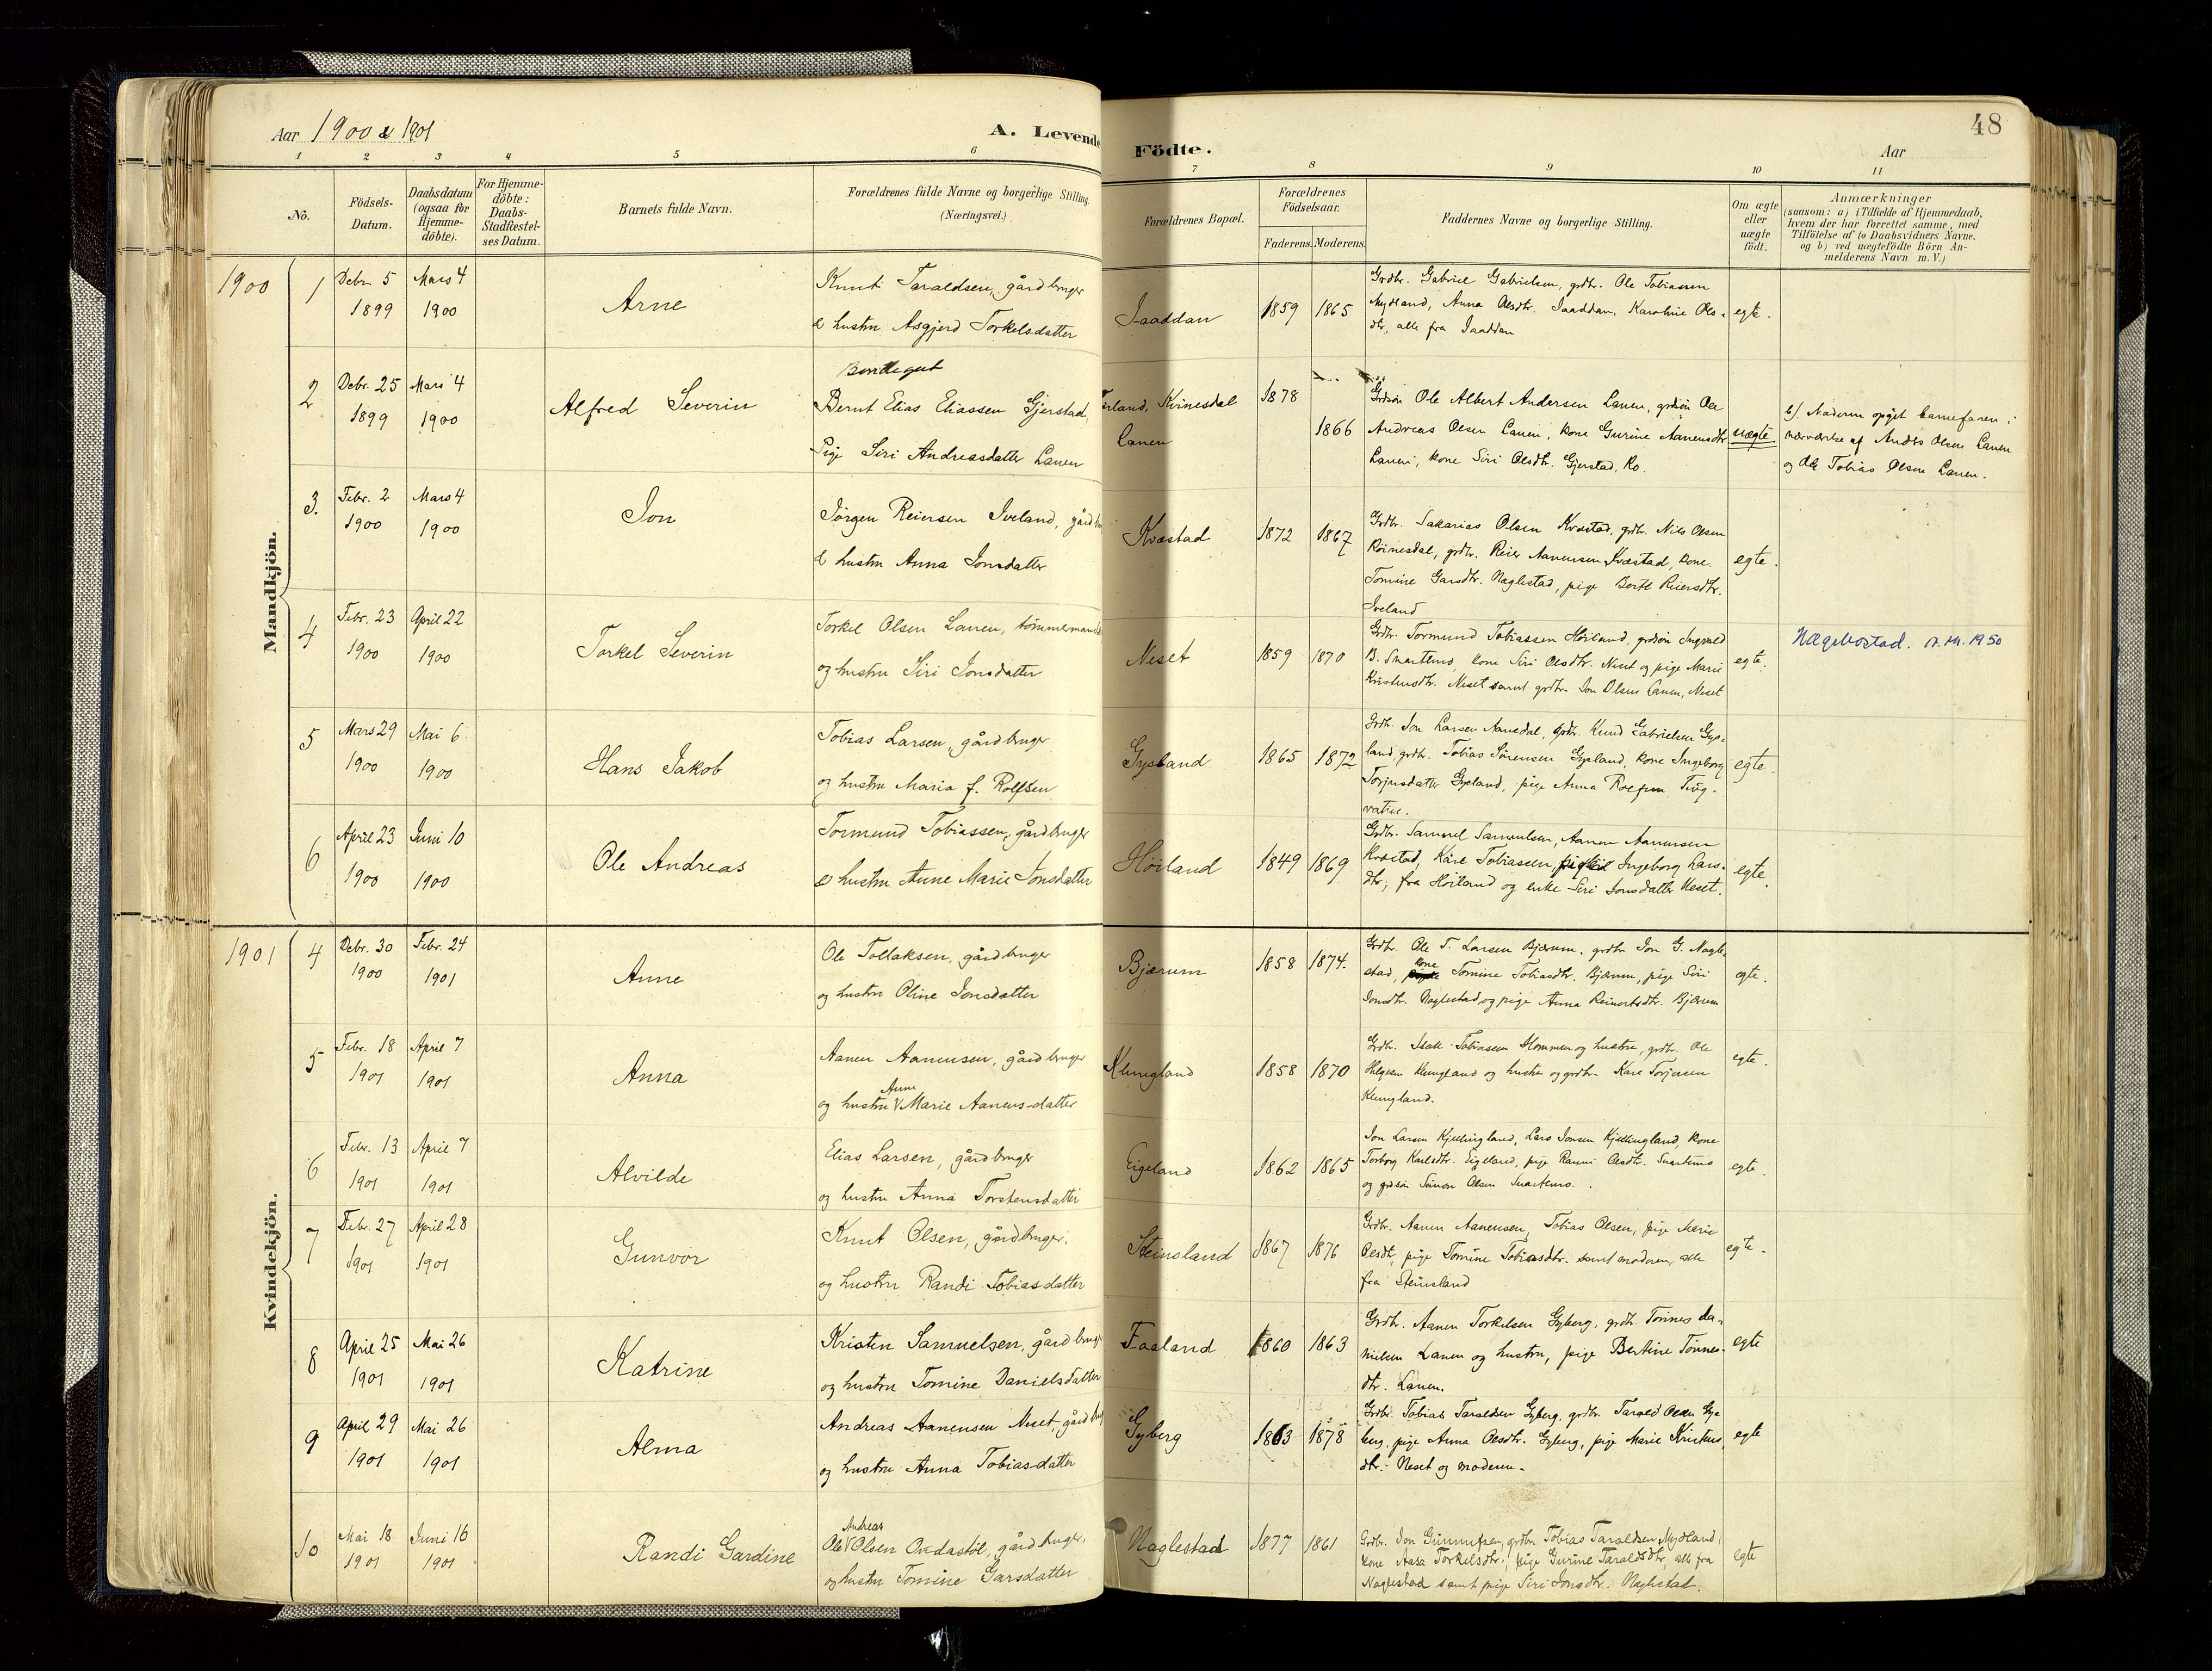 48
Aar 1900 & 1901
A. Levende Födte.
Aar
1 2 3 4 5 6 7 8 9 10 11
No.
Födsels-Datum.
Daabsdatum (ogsaa for Hjemme-döbte).
For Hjemme-döbte: Daabs-Stadfestel-ses Datum.
Barnets fulde Navn.
Forældrenes fulde Navne og borgerlige Stilling. (Næringsvei.)
Forældrenes Bopæl.
Forældrenes Födselsaar.
Faderens. Moderens.
Faddernes Navne og borgerlige Stilling.
Om ægte eller uægte födt.
Anmærkninger
(saasom: a) i Tilfælde af Hjemmedaab,
hvem der har forrettet samme, med
Tilföielse af to Daabsvidners Navne.
og b) ved uægtefödte Börn An-
melderens Navn m. V.)
Mandkjön.
1900
1
Debr. 5 1899
Mars 4 1900
Arne
Knut Taraldsen, gårdbruger
& hustru Asgjerd Torkelsdatter
Jaaddan
1859 1865
Grdbr. Gabriel Gabrielsen, grdbr. Ole Tobiassen
Mydland, Anna Olsdtr. Jaaddan, Karoline Ols-
dtr., alle fra Jaaddan
egte.
2
Debr. 25 1899
Mars 4 1900
Alfred Severin
Bondegut
Bernt Elias Eliassen Gjerstad,
Pige Siri Andreasdatter Lauen
Kvinesdal
Lauen
1878
1866
Grdsøn Ole Albert Andersen Lauen, grdsøn Ole
Andreas Olsen Lauen, kone Gurine Aanensdtr
Lauen, kone Siri Olsdtr. Gjerstad, Ko.
uægte
b). Moderen opgit barnefaren i
nærværelse af Anders Olsen Lauen
og Ole Tobias Olsen Lauen.
3.
Febr. 2 1900
Mars 4 1900
Jon
Jørgen Reiersen Iveland,
& hustru Anna Jonsdatter
Kvæstad
1872 1867
Grdbr. Sakarias Olsen Kvæstad, grdbr. Nils Olsen
Røinesdal, grdbr. Reier Aanensen Kvæstad, kone
Tomine Garsdtr. Naglestad, pige Berte Reiersdtr.
Iveland
egte.
4
Febr. 23 1900
April 22 1900
Torkel Severin
Torkel Olsen Lauen, tømmermand
og hustru Siri Jonsdatter
Neset
1859 1870
Grdbr. Tormund Tobiassen Høiland, grdsøn Ingvald
B. Snartemo, kone Siri Olsdtr. Neset og pige Marie
Kristensdtr. Neset samt grdbr. Jon Olsen Lauen, Neset
egte.
Hægebostad. 1950
5
Mars 29 1900
Mai 6. 1900
Hans Jakob
Tobias Larsen, gårdbruger
og hustru Maria f. Rolfsen
Gysland
1865 1872
Grdbr. Jon Larsen Aamdal, grdbr. Knud Gabrielsen Gys-
land, grdbr. Tobias Sørensen Gysland, kone Ingeborg
Torjusdatter Gysland, pige Anna
egte.
6
April 23 1900
Juni 10 1900
Ole Andreas
Tormund Tobiassen, gårdbruger
& hustru Anne Marie Jonsdatter
Høiland
1849 1869
Grdbr. Samuel Samuelsen, Aanen Aanensen
Kvæstad, Kåre Tobiassen, Ingeborg Lars-
dtr., fra Høiland og enke Siri Jonsdatter Neset.
egte.
Kvindekjön.
1901
4
Debr. 30 1900
Febr. 24 1901
Anne
Ole Tollaksen, gårdbruger
og hustru Oline Jonsdatter
Bjærum
1858 1874.
Grdbr. Ole T. Larsen Bjærum, grdbr. Jon G. Nagle-
stad, kone Tomine Tobiasdtr. Bjærum, pige Siri
Jonsdtr. Naglestad og pige Anna Reinertsdtr. Bjærum
egte.
5
Febr. 18 1901
April 7 1901
Anna
Aanen Aanensen, gårdbruger
og hustru Anne Marie Aanens-datter
Klungland
1858 1870
Grdbr. Isak Tobiassen Hommen og hustru, grdbr. Ole
Helgesen Klungland og hustru og grdbr. Kåre Torjussen
Klungland.
egte.
6
Febr. 13 1901
April 7 1901
Alvilde
Elias Larsen, gårdbruger
og hustru Anna Torstensdatter
Eigeland
1862 1865
Jon Larsen Kjellingland, Lars Jonsen Kjellingland, kone
Torborg Karlsdtr. Eigeland, pige Rannei Olsdtr. Snartemo
og grdsøn Simon Olsen Snartemo.
egte.
7
Febr. 27 1901
April 28 1901
Gunvor
Knut Olsen, gårdbruger,
og hustru Randi Tobiasdatter
Steinsland
1867 1876
Grdbr. Aanen Aanensen, Tobias Olsen, pige Marie
Olsdtr, pige Tomine Tobiasdtr. samt moderen, alle
fra Steinsland
egte.
8
April 25 1901
Mai 26 1901
Katrine
Kristen Samuelsen, gårdbruger
og hustru Tomine Danielsdatter
Faaland
1860 1863
Grdbr. Aanen Torkelsen Gyberg, grdbr. Tønnes Da-
nielsen Lauen og hustru, pige Bertine Tønnes-
dtr. Lauen.
egte
9
April 29 1901
Mai 26 1901
Alma
Andreas Aanensen Neset,
og hustru Anna Tobias-datter
Gyberg
1863 1878
Grdbr. Tobias Taraldsen Gyberg, grdbr. Tarald Olsen Gy-
berg, pige Anna Olsdtr. Gyberg, pige Marie Kristens
dtr. Neset og moderen.
egte
10
Mai 18 1901
Juni 16 1901
Randi Gardine
Ole Andreas Olsen Ovdastøl, gårdbruger,
og hustru Tomine Garsdatter
Naglestad
1877 1861
Grdbr. Jon Gunnufsen, grdbr. Tobias Taraldsen Mydland,
kone Aasa Torkelsdtr., pige Gurine Taraldsdtr, alle fra
Naglestad samt pige Siri Jonsdtr. Naglestad.
egte